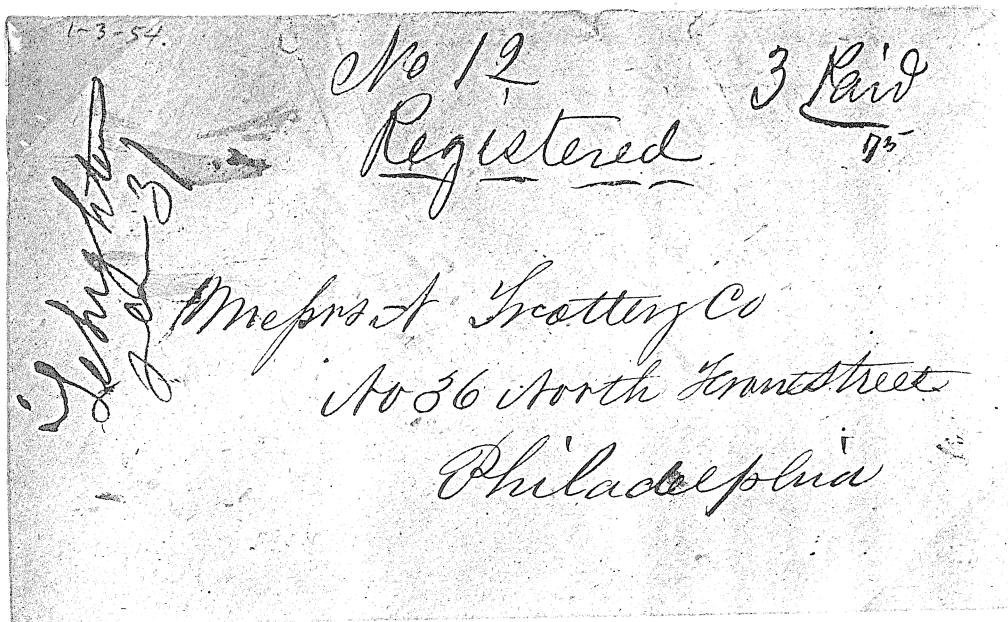 1-3-54.
No 12
Registered
3 Paid
75
Lehighton
Jan 31
Messrs N Trotter & Co
No 36 North Front Street
Philadelphia